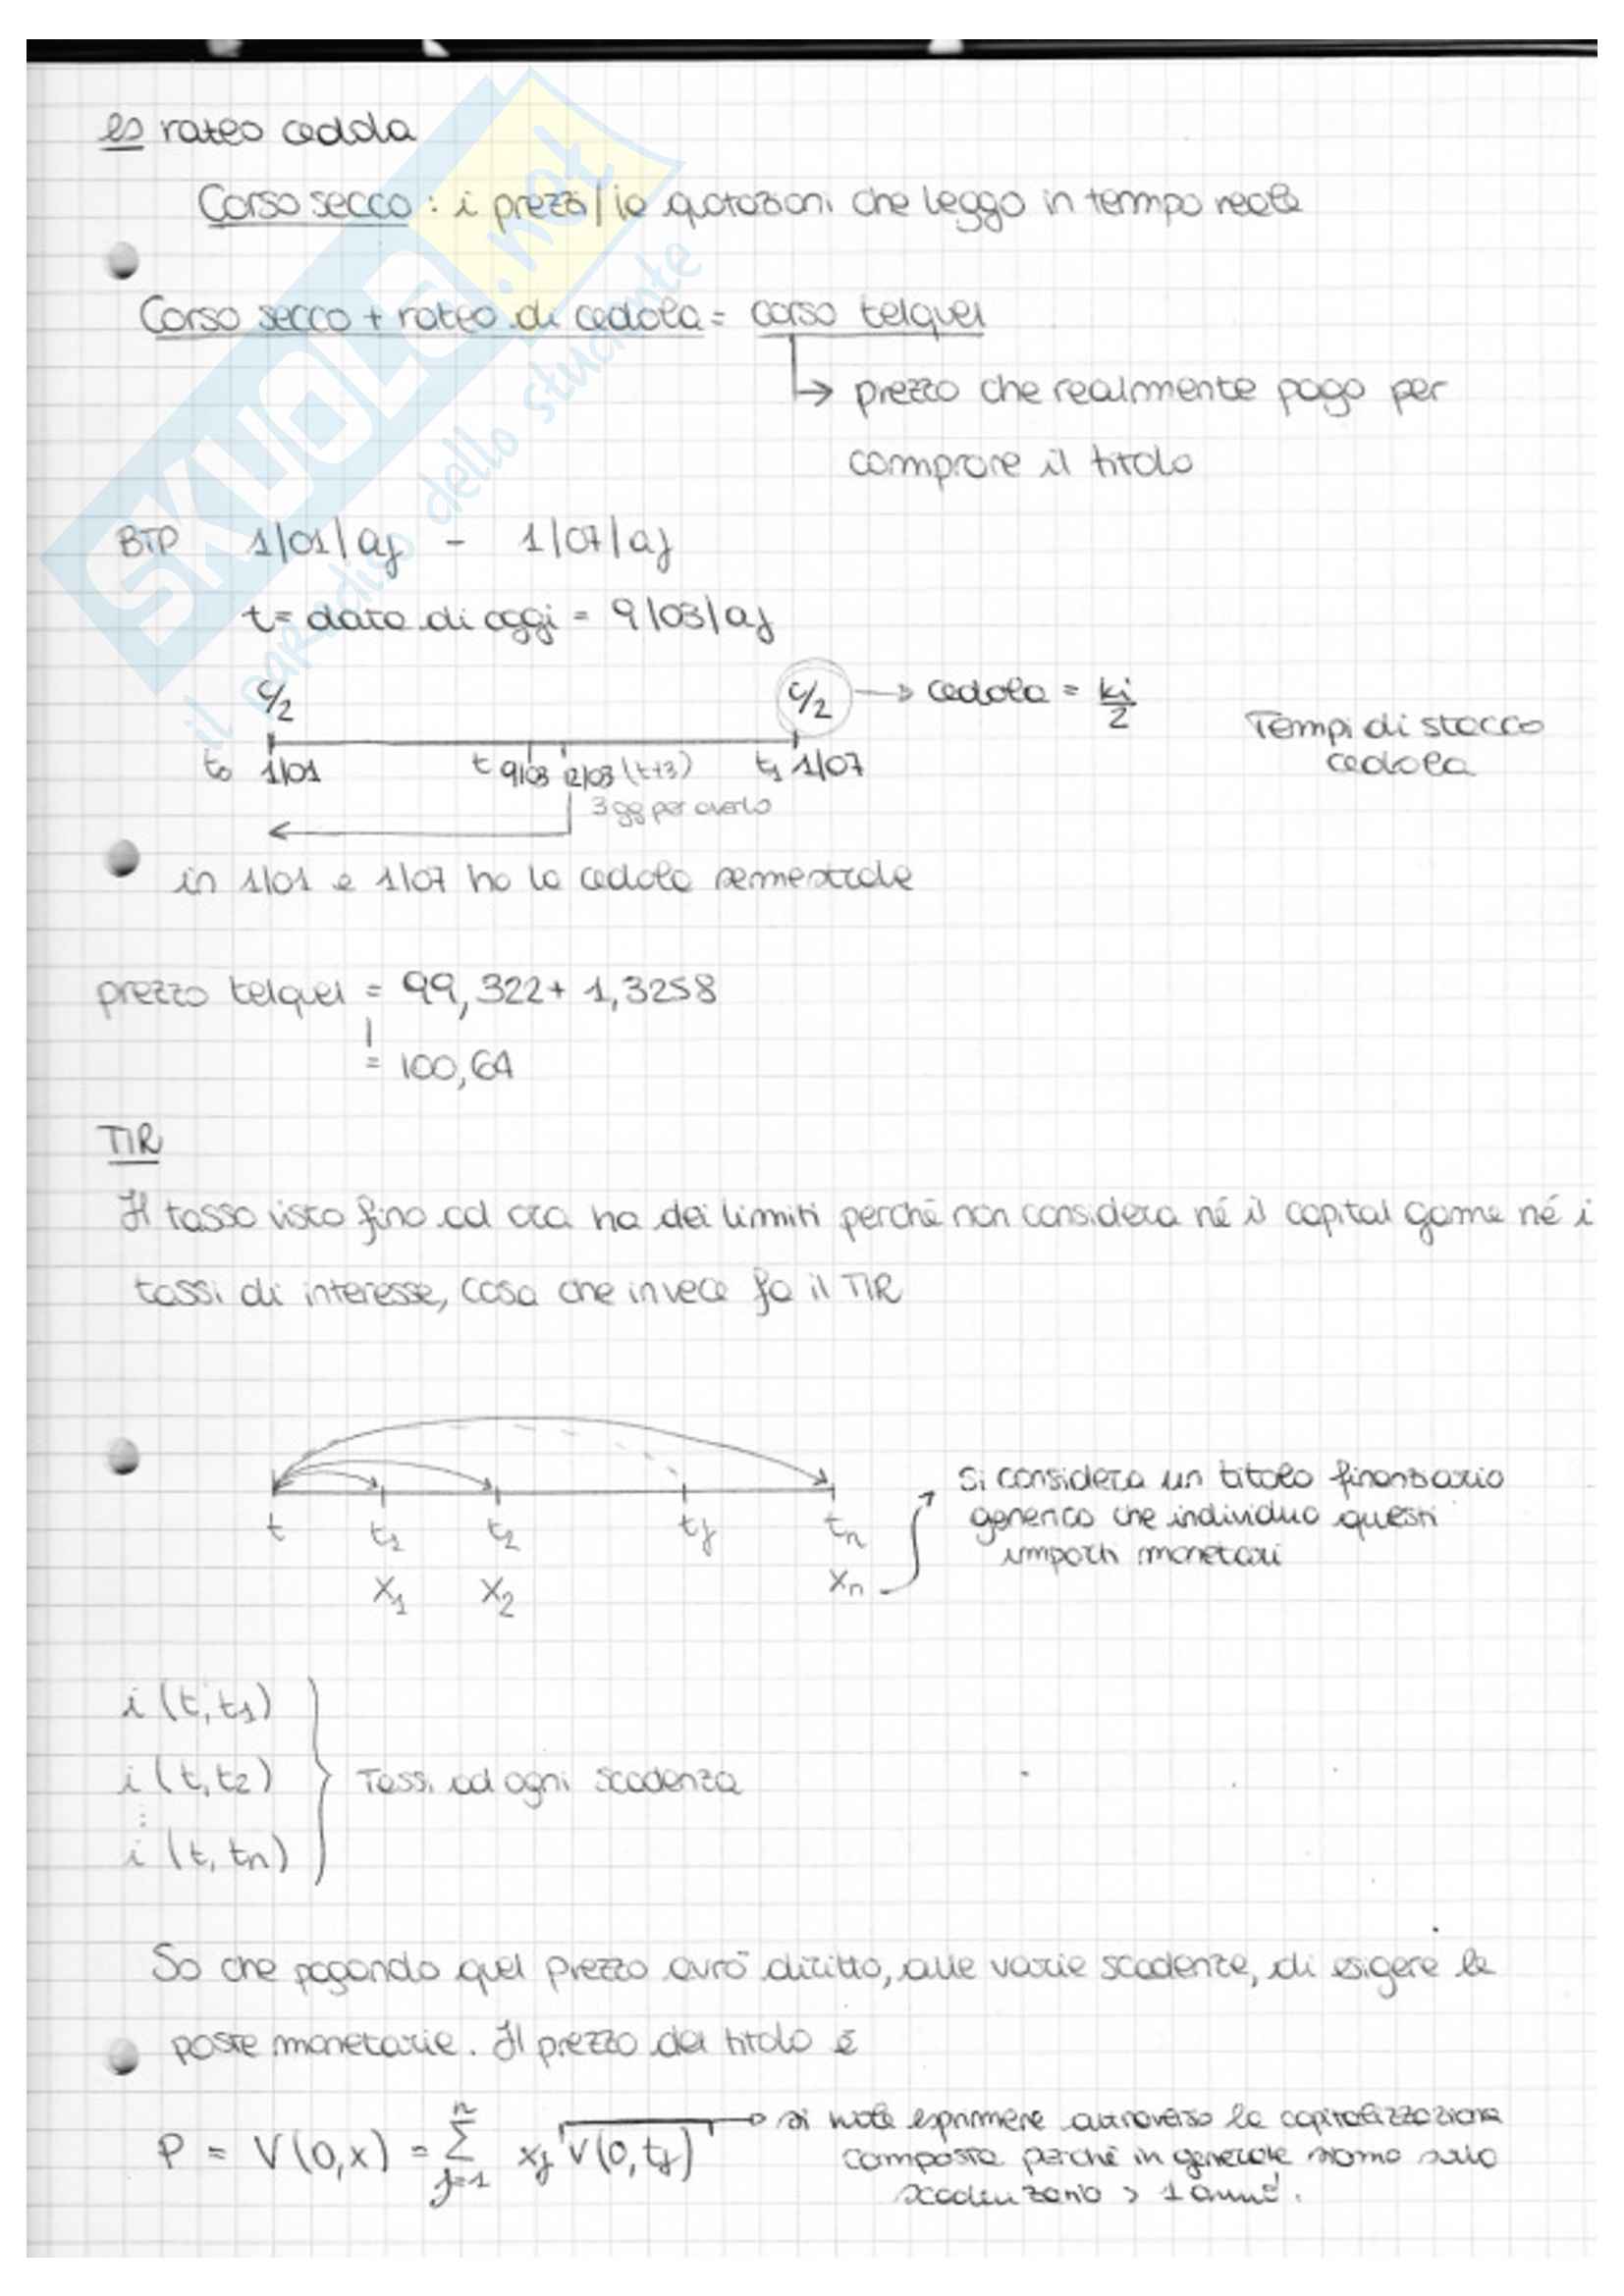 es rateo cedola
Corso secco : i prezzi/le quotazioni che leggo in tempo reale
Corso secco + rateo di cedola = corso telquel
→ prezzo che realmente pago per
comprare il titolo
BTP 1/01/aj - 1/07/aj
t = data di oggi = 9/03/aj
c/2 c/2 → cedola = ki/2
Tempi di stacco
cedola
t0 1/01 t 9/03 12/03 (t+3) t1 1/07
3 gg per averlo
in 1/01 e 1/07 ho la cedola semestrale
prezzo telquel = 99,322 + 1,3258
= 100,64
TIR
Il tasso visto fino ad ora ha dei limiti perché non considera né il capital game né i
tassi di interesse, cosa che invece fa il TIR
t t1 t2 tj tn
x1 x2 xn
Si considera un titolo finanziario
generico che individua questi
importi monetari
i (t, t1)
i (t, t2)
⋮
i (t, tn)
Tassi ad ogni scadenza
So che pagando quel prezzo avrò diritto, alle varie scadenze, di esigere le
poste monetarie. Il prezzo del titolo è
P = V(0,x) = Σ j=1 n xj v(0,tj)
si vuole esprimere attraverso la capitalizzazione
composta perché in generale siamo sullo
scadenzario > 1 anno.
SKUOLA.net
il paradiso dello studente